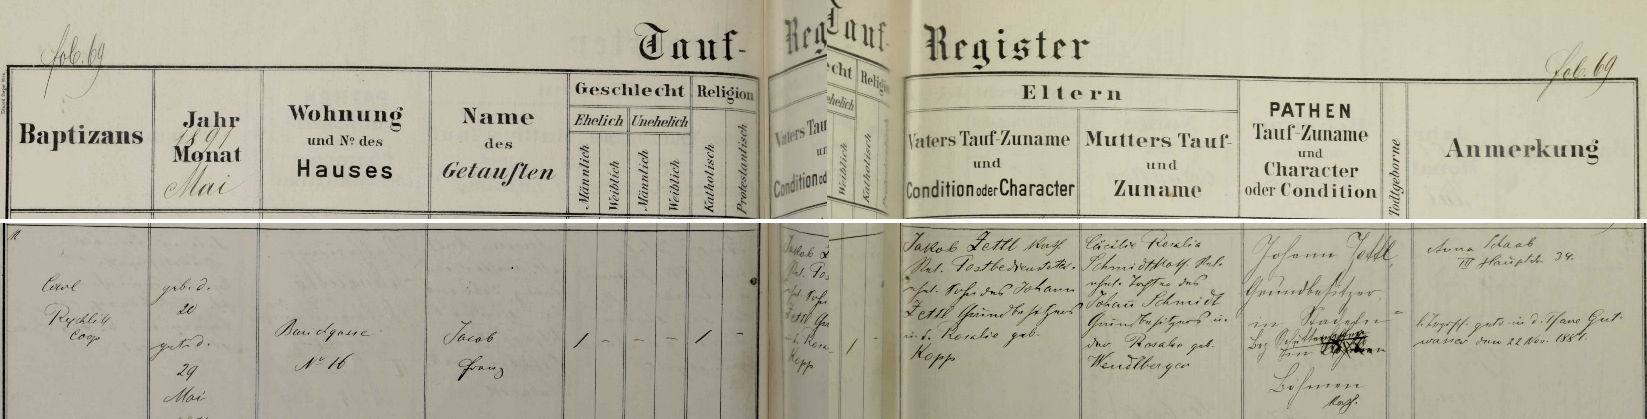 fol. 69
Tauf-
Register
fol. 69
Baptizans
Jahr
1891
Monat
Mai
Wohnung
und No des
Hauses
Name
des
Getauften
Geschlecht
Religion
Ehelich
Unehelich
Männlich
Weiblich
Männlich
Weiblich
Katholisch
Protestantisch
Eltern
Vaters Tauf-Zuname
und
Condition oder Character
Mutters Tauf-
und
Zuname
PATHEN
Tauf-Zuname
und
Character
oder Condition
Todtgeborne
Anmerkung
Carl
Rychlik
Coop
geb. d.
20
get. d.
29
Mai
Bandgasse
No 16
Jacob
Franz
Jakob Zettl kath.
Postbediensteter
ehel. Sohn des Johann
Zettl Grundbesitzers
u. d. Rosalie geb.
Kopp
Cäcilia Rosalia
Schmidt kath.
ehel. Tochter des
Johann Schmidt
Grundbesitzers u.
der Rosalia geb.
Wendlberger
Johann Zettl,
Grundbesitzer
in Stadeln
Bez. Schüttenhofen
Böhmen
kath.
Anna Schaab
III Hauptstr. 34.
get. in d. Pfarre Gut-
wasser den 22 Nov. 1887.